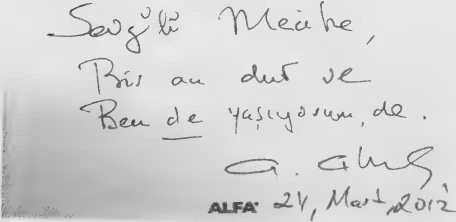 Sevgili Melike,
Bir an dur ve
Ben de yaşıyorum, de.
ALFA 24, Mart, 2012